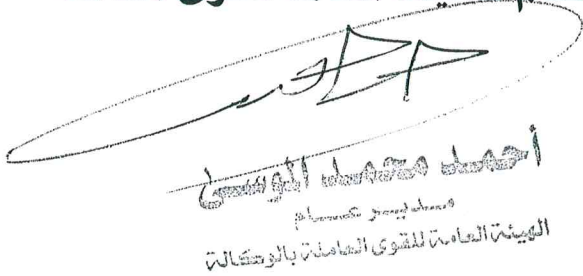 أحمد محمد الموسى
مدير عام
الهيئة العامة للقوى العاملة بالوكالة